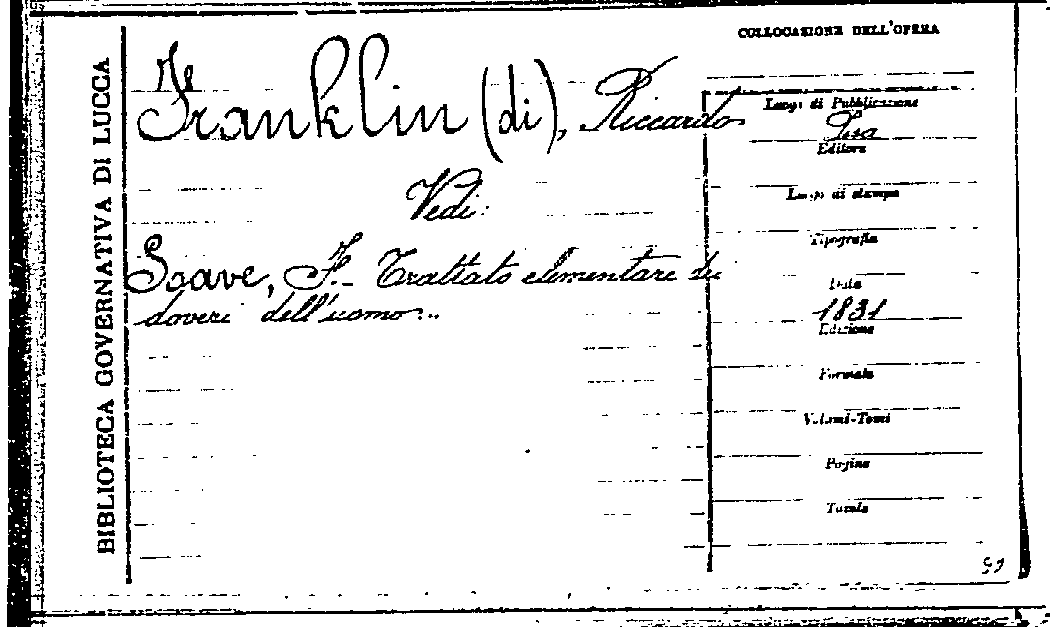 BIBLIOTECA GOVERNATIVA DI LUCCA
Franklin (di), Riccardo
Vedi:
Soave, F. Trattato elementare dei
doveri dell'uomo...
COLLOCAZIONE DELL'OPERA
Luogo di Pubblicazione
Editore
Luogo di stampa
Tipografia
Data
1831
Edizione
Formato
Volumi-Tomi
Pagine
Tavole